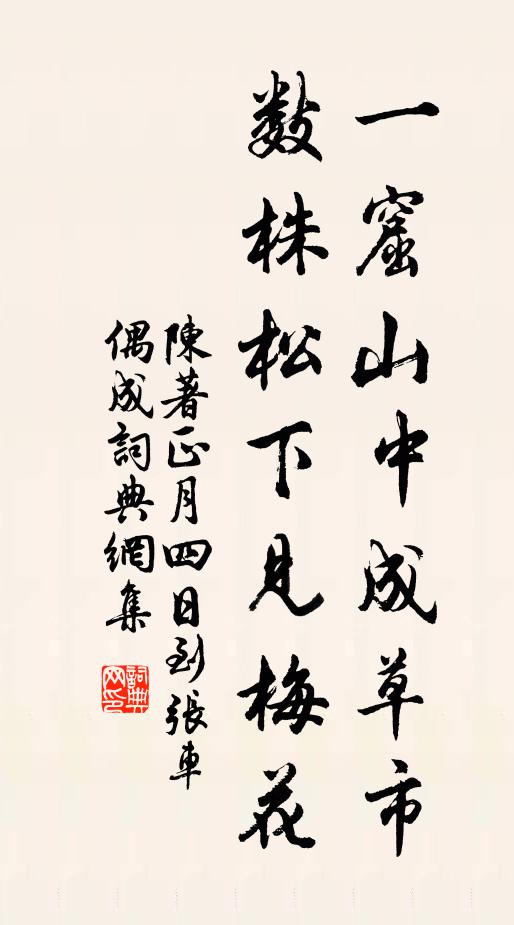 一窟山中成草市
数株松下見梅花
陳著正月四日到張車
偶成詞典網集
詞典网印